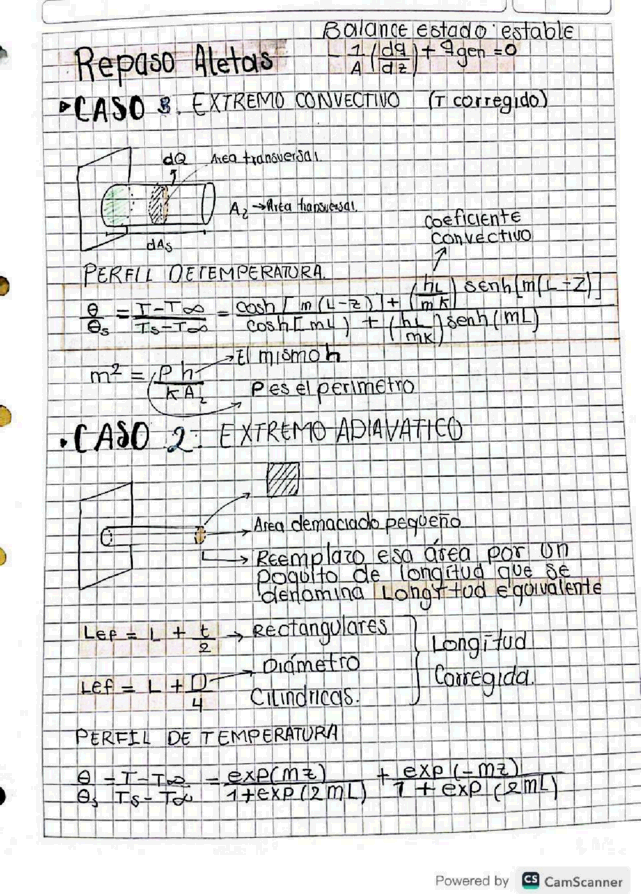 Balance estado estable
Repaso Aletas
- 1/A (dq/dz) + qgen = 0
▸CASO 3. EXTREMO CONVECTIVO (T corregido)
dQ Area transversal
A₂ → Area transversal
dAs
coeficiente
convectivo
PERFIL DETEMPERATURA
θ/θs = T-T∞/Ts-T∞ = cosh[m(L-z)] + (hL/mk) senh[m(L-z)] / cosh[mL] + (hL/mk) senh(mL)
m² = Ph/KA₂ → El mismo h
P es el perimetro
• CASO 2: EXTREMO ADIAVATICO
Area demaciado pequeño
Reemplazo esa área por un
poquito de longitud que se
denomina Longitud equivalente
Lef = L + t/2 → Rectangulares
Longitud
Diámetro
Corregida.
Lef = L + D/4
Cilindricas.
PERFIL DE TEMPERATURA
θ/θs = T-T∞/Ts-T∞ = exp(mz)/1+exp(2mL) + exp(-mz)/1+exp(2mL)
Powered by CS CamScanner